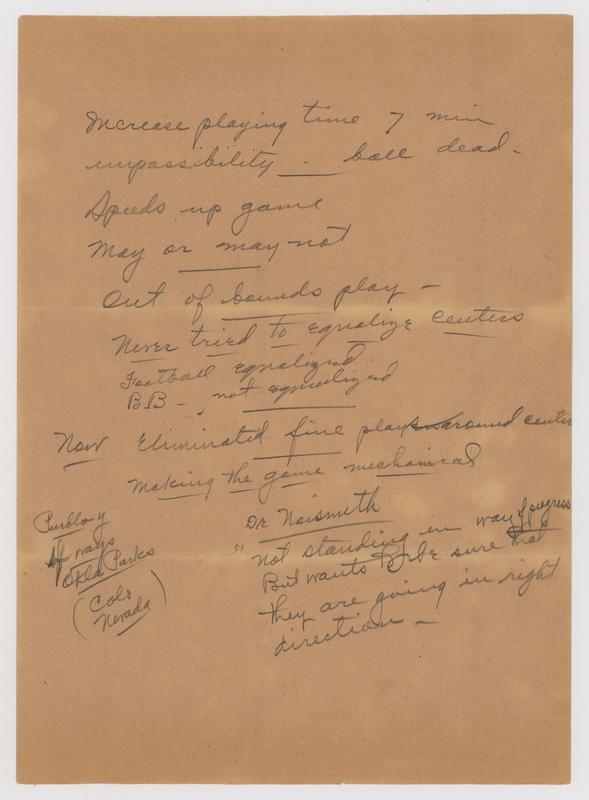 Increase playing time 7 min
impassibility - ball dead -
Speeds up game
May or may not
Out of bounds play -
Never tried to equalize centers
Football equalized
BB - not equalized
Now Eliminated fine plays around center
Making the game mechanical
Dr Naismith
" Not standing in way of progress
But wants to be sure that
they are going in right
direction -
Pueblo
Okla Parks
(Colo
Nevada)